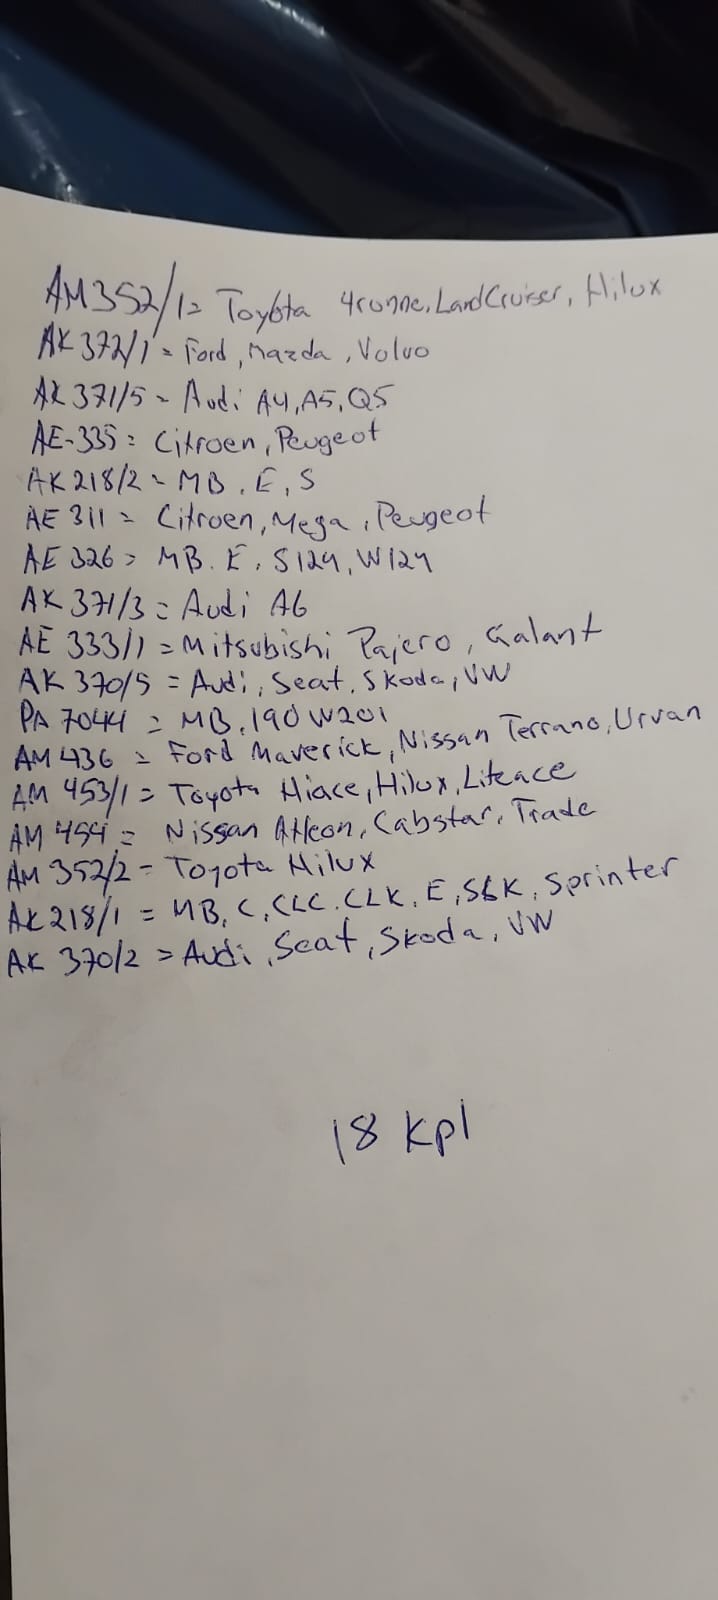 AM352/1= Toyota 4runne, LandCruiser, Hilux
AK 372/1 = Ford, Mazda, Volvo
AK 371/5 = Audi A4, A5, Q5
AE-335 = Citroen, Peugeot
AK 218/2 = MB, E, S
AE 311 = Citroen, Mega, Peugeot
AE 326 = MB. E, S124, W124
AK 371/3 = Audi A6
AE 333/1 = Mitsubishi Pajero, Galant
AK 370/5 = Audi, Seat, Skoda, VW
PA 7044 = MB, 190 W201
AM 436 = Ford Maverick, Nissan Terrano, Urvan
AM 453/1 = Toyota Hiace, Hilux, Liteace
AM 454 = Nissan Atleon, Cabstar, Trade
AM 352/2 = Toyota Hilux
AK 218/1 = MB, C, CLC, CLK, E, SLK, Sprinter
AK 370/2 = Audi, Seat, Skoda, VW
18 kpl